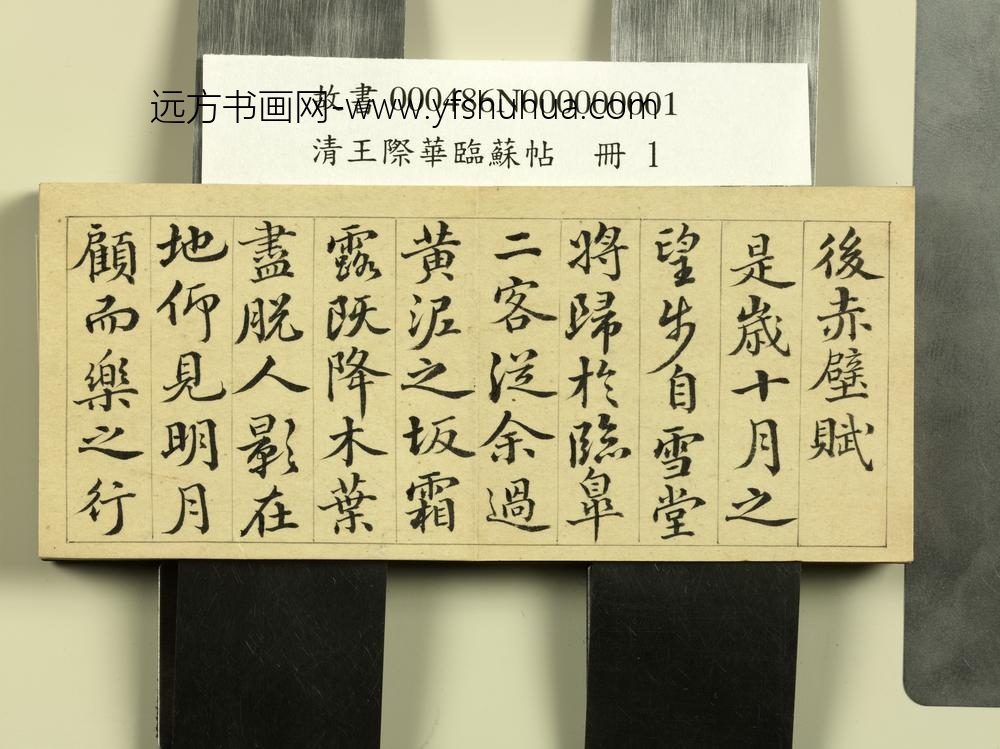 故書 000486N000000001
远方书画网-www.yfshuhua.com
清王際華臨蘇帖 冊 1
後赤壁賦
是歲十月之
望步自雪堂
將歸於臨皐
二客從余過
黃泥之坂霜
露既降木葉
盡脫人影在
地仰見明月
顧而樂之行